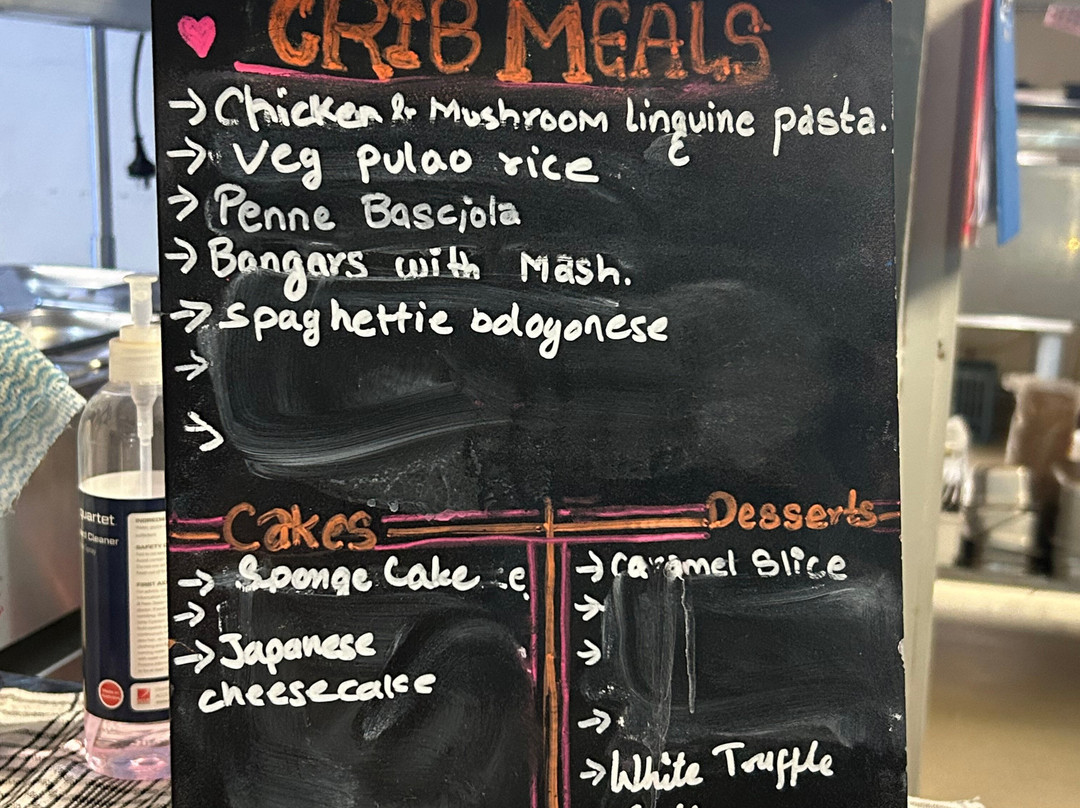 CRIB MEALS
→ Chicken & Mushroom linguine pasta.
→ Veg pulao rice
→ Penne Basciola
→ Bangars with Mash.
→ Spaghettie bologonese
→
→
Cakes
→ Sponge Cake
→
→ Japanese
cheesecake
Desserts
→ Caramel Slice
→
→
→
→ White Truffle
uartet
Cleaner